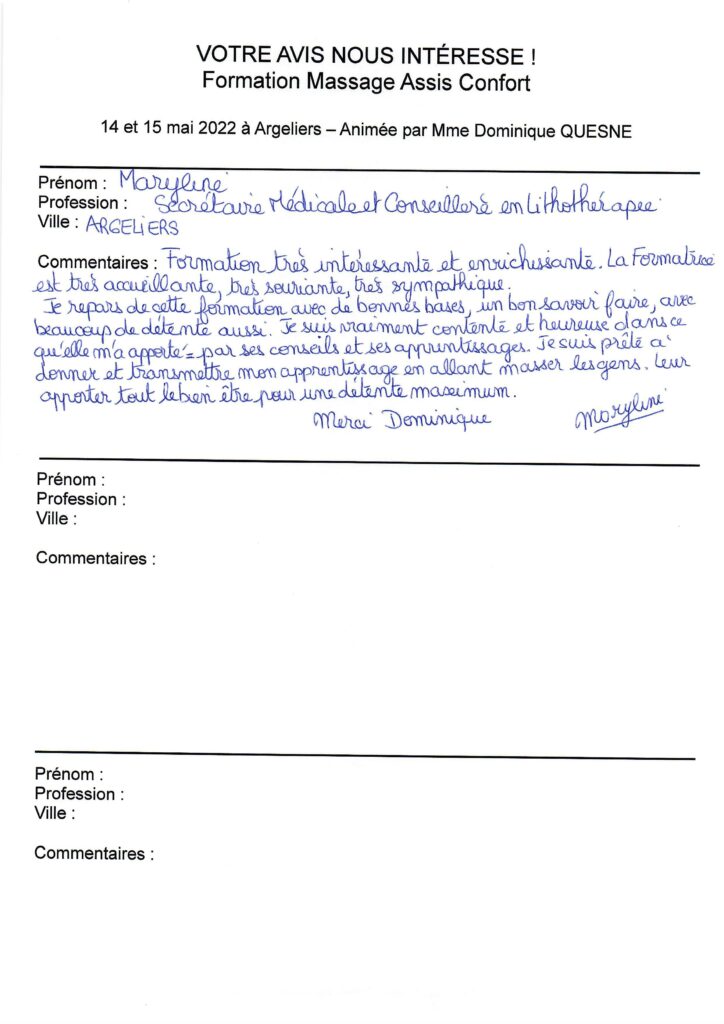 VOTRE AVIS NOUS INTÉRESSE !
Formation Massage Assis Confort
14 et 15 mai 2022 à Argeliers – Animée par Mme Dominique QUESNE
Prénom : Maryline
Profession : Secrétaire Médicale et Conseillère en Lithothérapie
Ville : ARGELIERS
Commentaires : Formation très intéressante et enrichissante. La Formatrice
est très accueillante, très souriante, très sympathique.
Je repars de cette formation avec de bonnes bases, un bon savoir faire, avec
beaucoup de détente aussi. Je suis vraiment contente et heureuse dans ce
qu'elle m'a apporté = par ses conseils et ses apprentissages. Je suis prête à
donner et transmettre mon apprentissage en allant masser les gens. Leur
apporter tout le bien être pour une détente maximum.
Merci Dominique Maryline
Prénom :
Profession :
Ville :
Commentaires :
Prénom :
Profession :
Ville :
Commentaires :